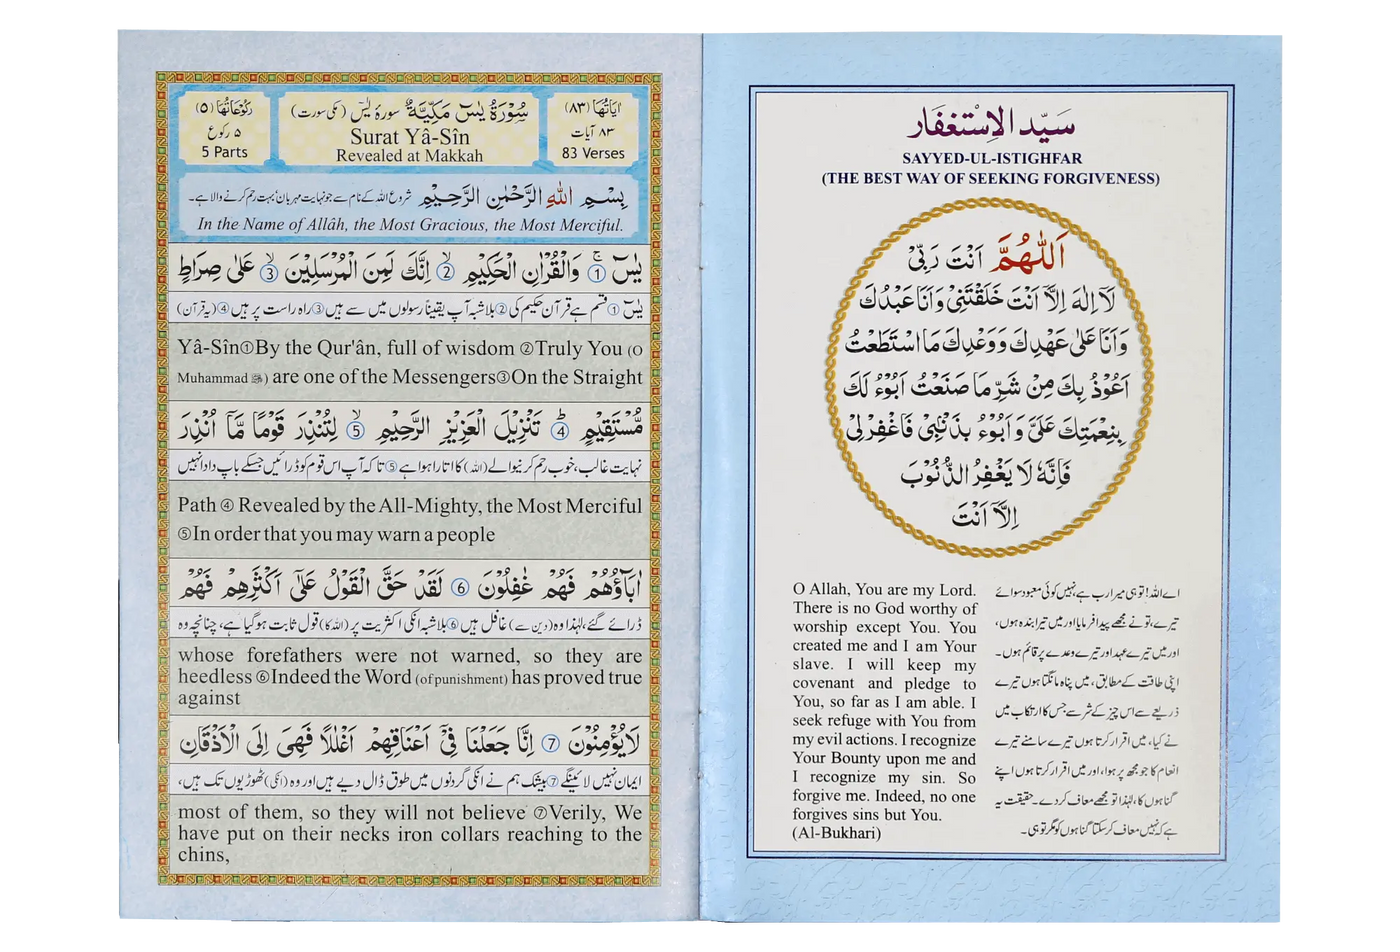 اٰيَاتُهَا (٨٣)
٨٣ آیات
83 Verses
سُوْرَةُ يٰسٓ مَكِّيَّةٌ سورۂ یٰسٓ (مکی سورت)
Surat Yâ-Sîn
Revealed at Makkah
رُكُوْعَاتُهَا (٥)
٥ رکوع
5 Parts
بِسْمِ اللّٰهِ الرَّحْمٰنِ الرَّحِيْمِ شروع اللہ کے نام سے جو نہایت مہربان، بہت رحم کرنے والا ہے۔
In the Name of Allâh, the Most Gracious, the Most Merciful.
يٰسٓ ۚ ① وَالْقُرْاٰنِ الْحَكِيْمِ ۙ ② اِنَّكَ لَمِنَ الْمُرْسَلِيْنَ ۙ ③ عَلٰى صِرَاطٍ
یٰسٓ ① قسم ہے قرآن حکیم کی ② بلاشبہ آپ یقیناً رسولوں میں سے ہیں ③ راہ راست پر ہیں ④ (یہ قرآن)
Yâ-Sîn①By the Qur'ân, full of wisdom ②Truly You (O
Muhammad ﷺ) are one of the Messengers③On the Straight
مُّسْتَقِيْمٍ ؕ ④ تَنْزِيْلَ الْعَزِيْزِ الرَّحِيْمِ ۙ ⑤ لِتُنْذِرَ قَوْمًا مَّآ اُنْذِرَ
نہایت غالب، خوب رحم کرنیوالے (اللہ) کا اتارا ہوا ہے ⑤ تاکہ آپ اس قوم کو ڈرائیں جسکے باپ دادا نہیں
Path ④ Revealed by the All-Mighty, the Most Merciful
⑤In order that you may warn a people
اٰبَآؤُهُمْ فَهُمْ غٰفِلُوْنَ ⑥ لَقَدْ حَقَّ الْقَوْلُ عَلٰٓى اَكْثَرِهِمْ فَهُمْ
ڈرائے گئے، لہٰذا وہ (دین سے) غافل ہیں ⑥ بلاشبہ انکی اکثریت پر (اللہ کا) قول ثابت ہو گیا ہے، چنانچہ وہ
whose forefathers were not warned, so they are
heedless ⑥Indeed the Word (of punishment) has proved true
against
لَا يُؤْمِنُوْنَ ⑦ اِنَّا جَعَلْنَا فِيْٓ اَعْنَاقِهِمْ اَغْلٰلًا فَهِىَ اِلَى الْاَذْقَانِ
ایمان نہیں لائینگے ⑦ بیشک ہم نے انکی گردنوں میں طوق ڈال دیے ہیں اور وہ (انکی) ٹھوڑیوں تک ہیں،
most of them, so they will not believe ⑦Verily, We
have put on their necks iron collars reaching to the
chins,
سَيِّدُ الْاِسْتِغْفَار
SAYYED-UL-ISTIGHFAR
(THE BEST WAY OF SEEKING FORGIVENESS)
اَللّٰهُمَّ اَنْتَ رَبِّيْ
لَآ اِلٰهَ اِلَّآ اَنْتَ خَلَقْتَنِيْ وَاَنَا عَبْدُكَ
وَاَنَا عَلٰى عَهْدِكَ وَوَعْدِكَ مَا اسْتَطَعْتُ
اَعُوْذُ بِكَ مِنْ شَرِّ مَا صَنَعْتُ اَبُوْءُ لَكَ
بِنِعْمَتِكَ عَلَيَّ وَ اَبُوْءُ بِذَنْبِيْ فَاغْفِرْ لِيْ
فَاِنَّهٗ لَا يَغْفِرُ الذُّنُوْبَ
اِلَّآ اَنْتَ
O Allah, You are my Lord.
There is no God worthy of
worship except You. You
created me and I am Your
slave. I will keep my
covenant and pledge to
You, so far as I am able. I
seek refuge with You from
my evil actions. I recognize
Your Bounty upon me and
I recognize my sin. So
forgive me. Indeed, no one
forgives sins but You.
(Al-Bukhari)
اے اللہ! تو ہی میرا رب ہے، نہیں کوئی معبود سوائے
تیرے، تو نے مجھے پیدا فرمایا اور میں تیرا بندہ ہوں،
اور میں تیرے عہد اور تیرے وعدے پر قائم ہوں۔
اپنی طاقت کے مطابق، میں پناہ مانگتا ہوں تیرے
ذریعے سے اس چیز کے شر سے جس کا ارتکاب میں
نے کیا، میں اقرار کرتا ہوں تیرے سامنے تیرے
انعام کا جو مجھ پر ہوا، اور میں اقرار کرتا ہوں اپنے
گناہوں کا، لہٰذا تو مجھے معاف کر دے۔ حقیقت یہ
ہے کہ نہیں معاف کر سکتا گناہوں کو مگر تو ہی۔